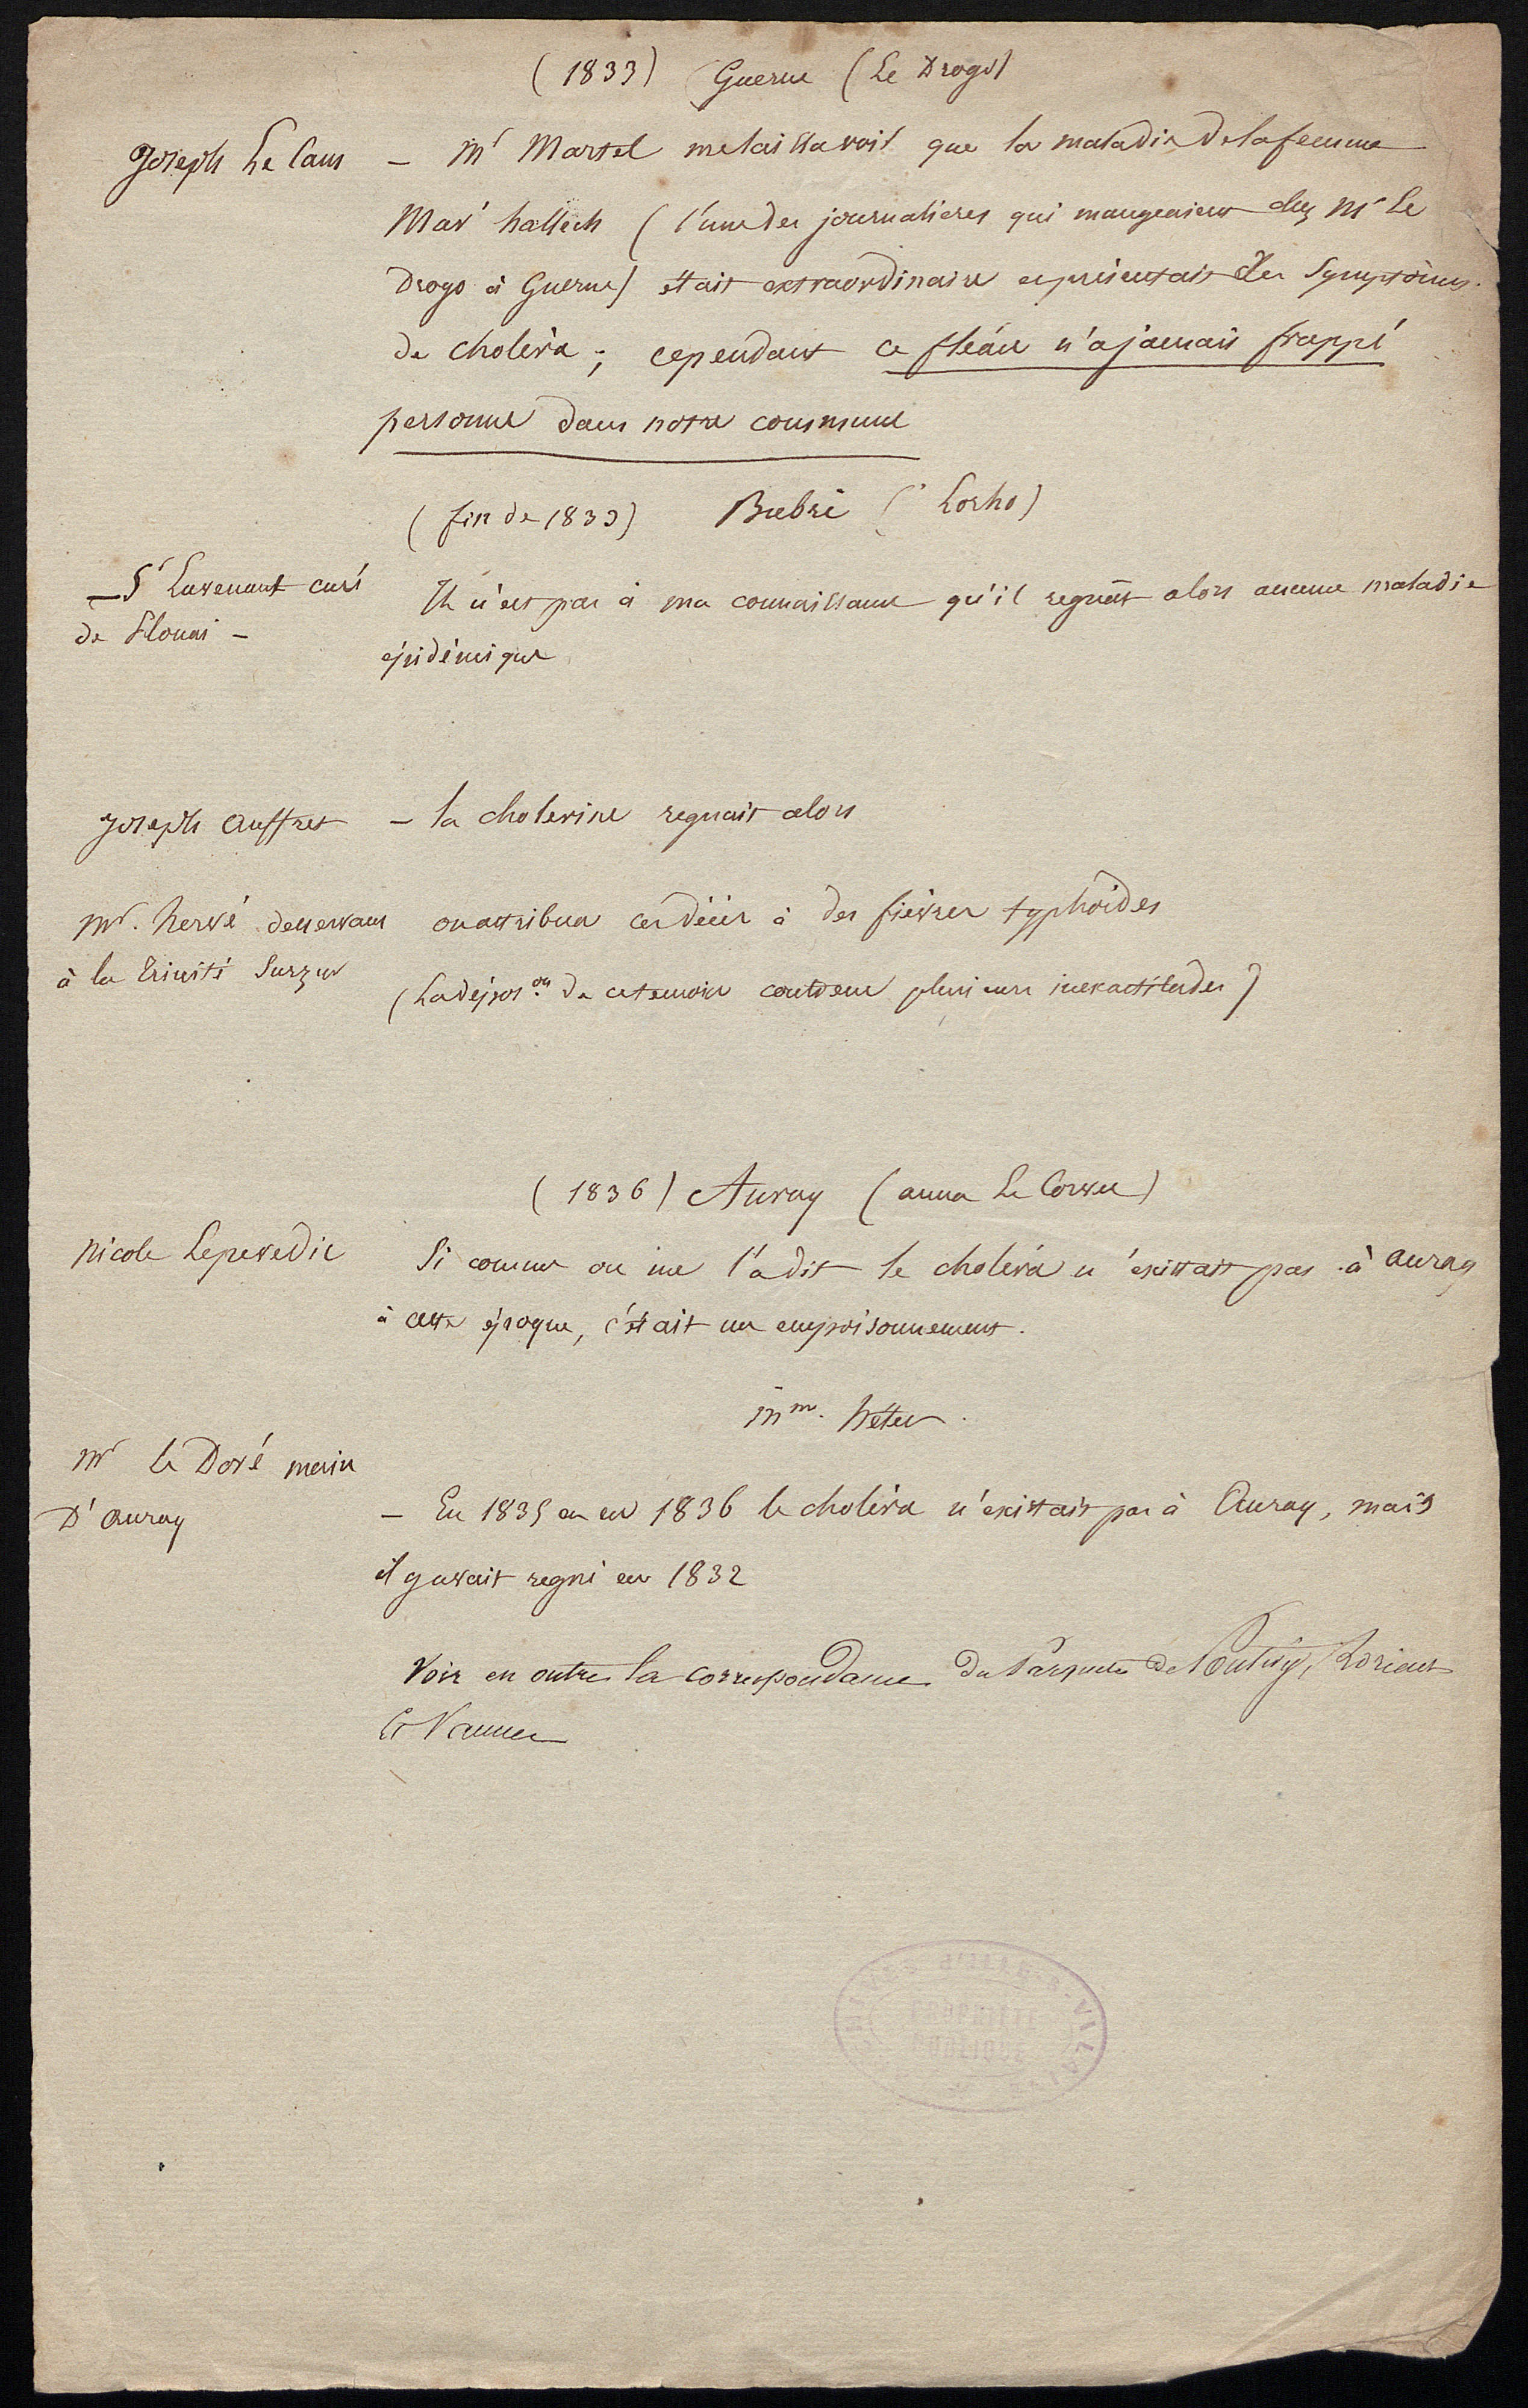 (1833) Guerne (Le Drogo)
Joseph Le Cam – Mr Martel me laissa voir que la maladie de la femme
Mar' hallech (l'une des journalieres qui mangeaient chez Mr Le
Drogo à Guerne) était extraordinaire et présentait des symptômes
de choléra ; cependant ce fléau n'a jamais frappé
personne dans notre commune
(fin de 1833) Bubri (Lorho)
– Sr Lavenant curé
de Plouai –
Il n'est pas à ma connaissance qu'il regnât alors aucune maladie
épidémique
Joseph Auffret – la cholerine regnait alors
Mr. Hervé desservant
à la Trinité Surzur
on attribua ces décès à des fièvres typhoïdes
(La dépos.on de ce temoin contient plusieurs inexactitudes)
(1836) Auray (anna Le Corvec)
Nicole Le pevedic Si comme on me l'a dit le choléra n'existait pas à auray
à cette époque, c'était un empoisonnement.
Mm. hétel
Mr Le Doré mari
D'auray
– En 1835 ou en 1836 le choléra n'existait pas à Auray, mais
il y avait regné en 1832
Voir en outre la correspondance du Parquet de Pontivy, Lorient
Et Vannes